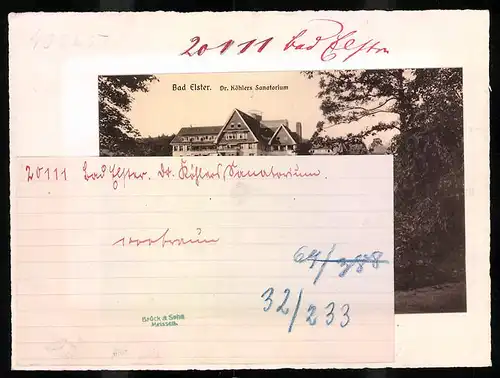 20111 Bad Elster
Bad Elster. Dr. Köhlers Sanatorium
20111 Bad Elster. Dr. Köhlers Sanatorium.
64/388
32/233
Brück & Sohn
Meissen